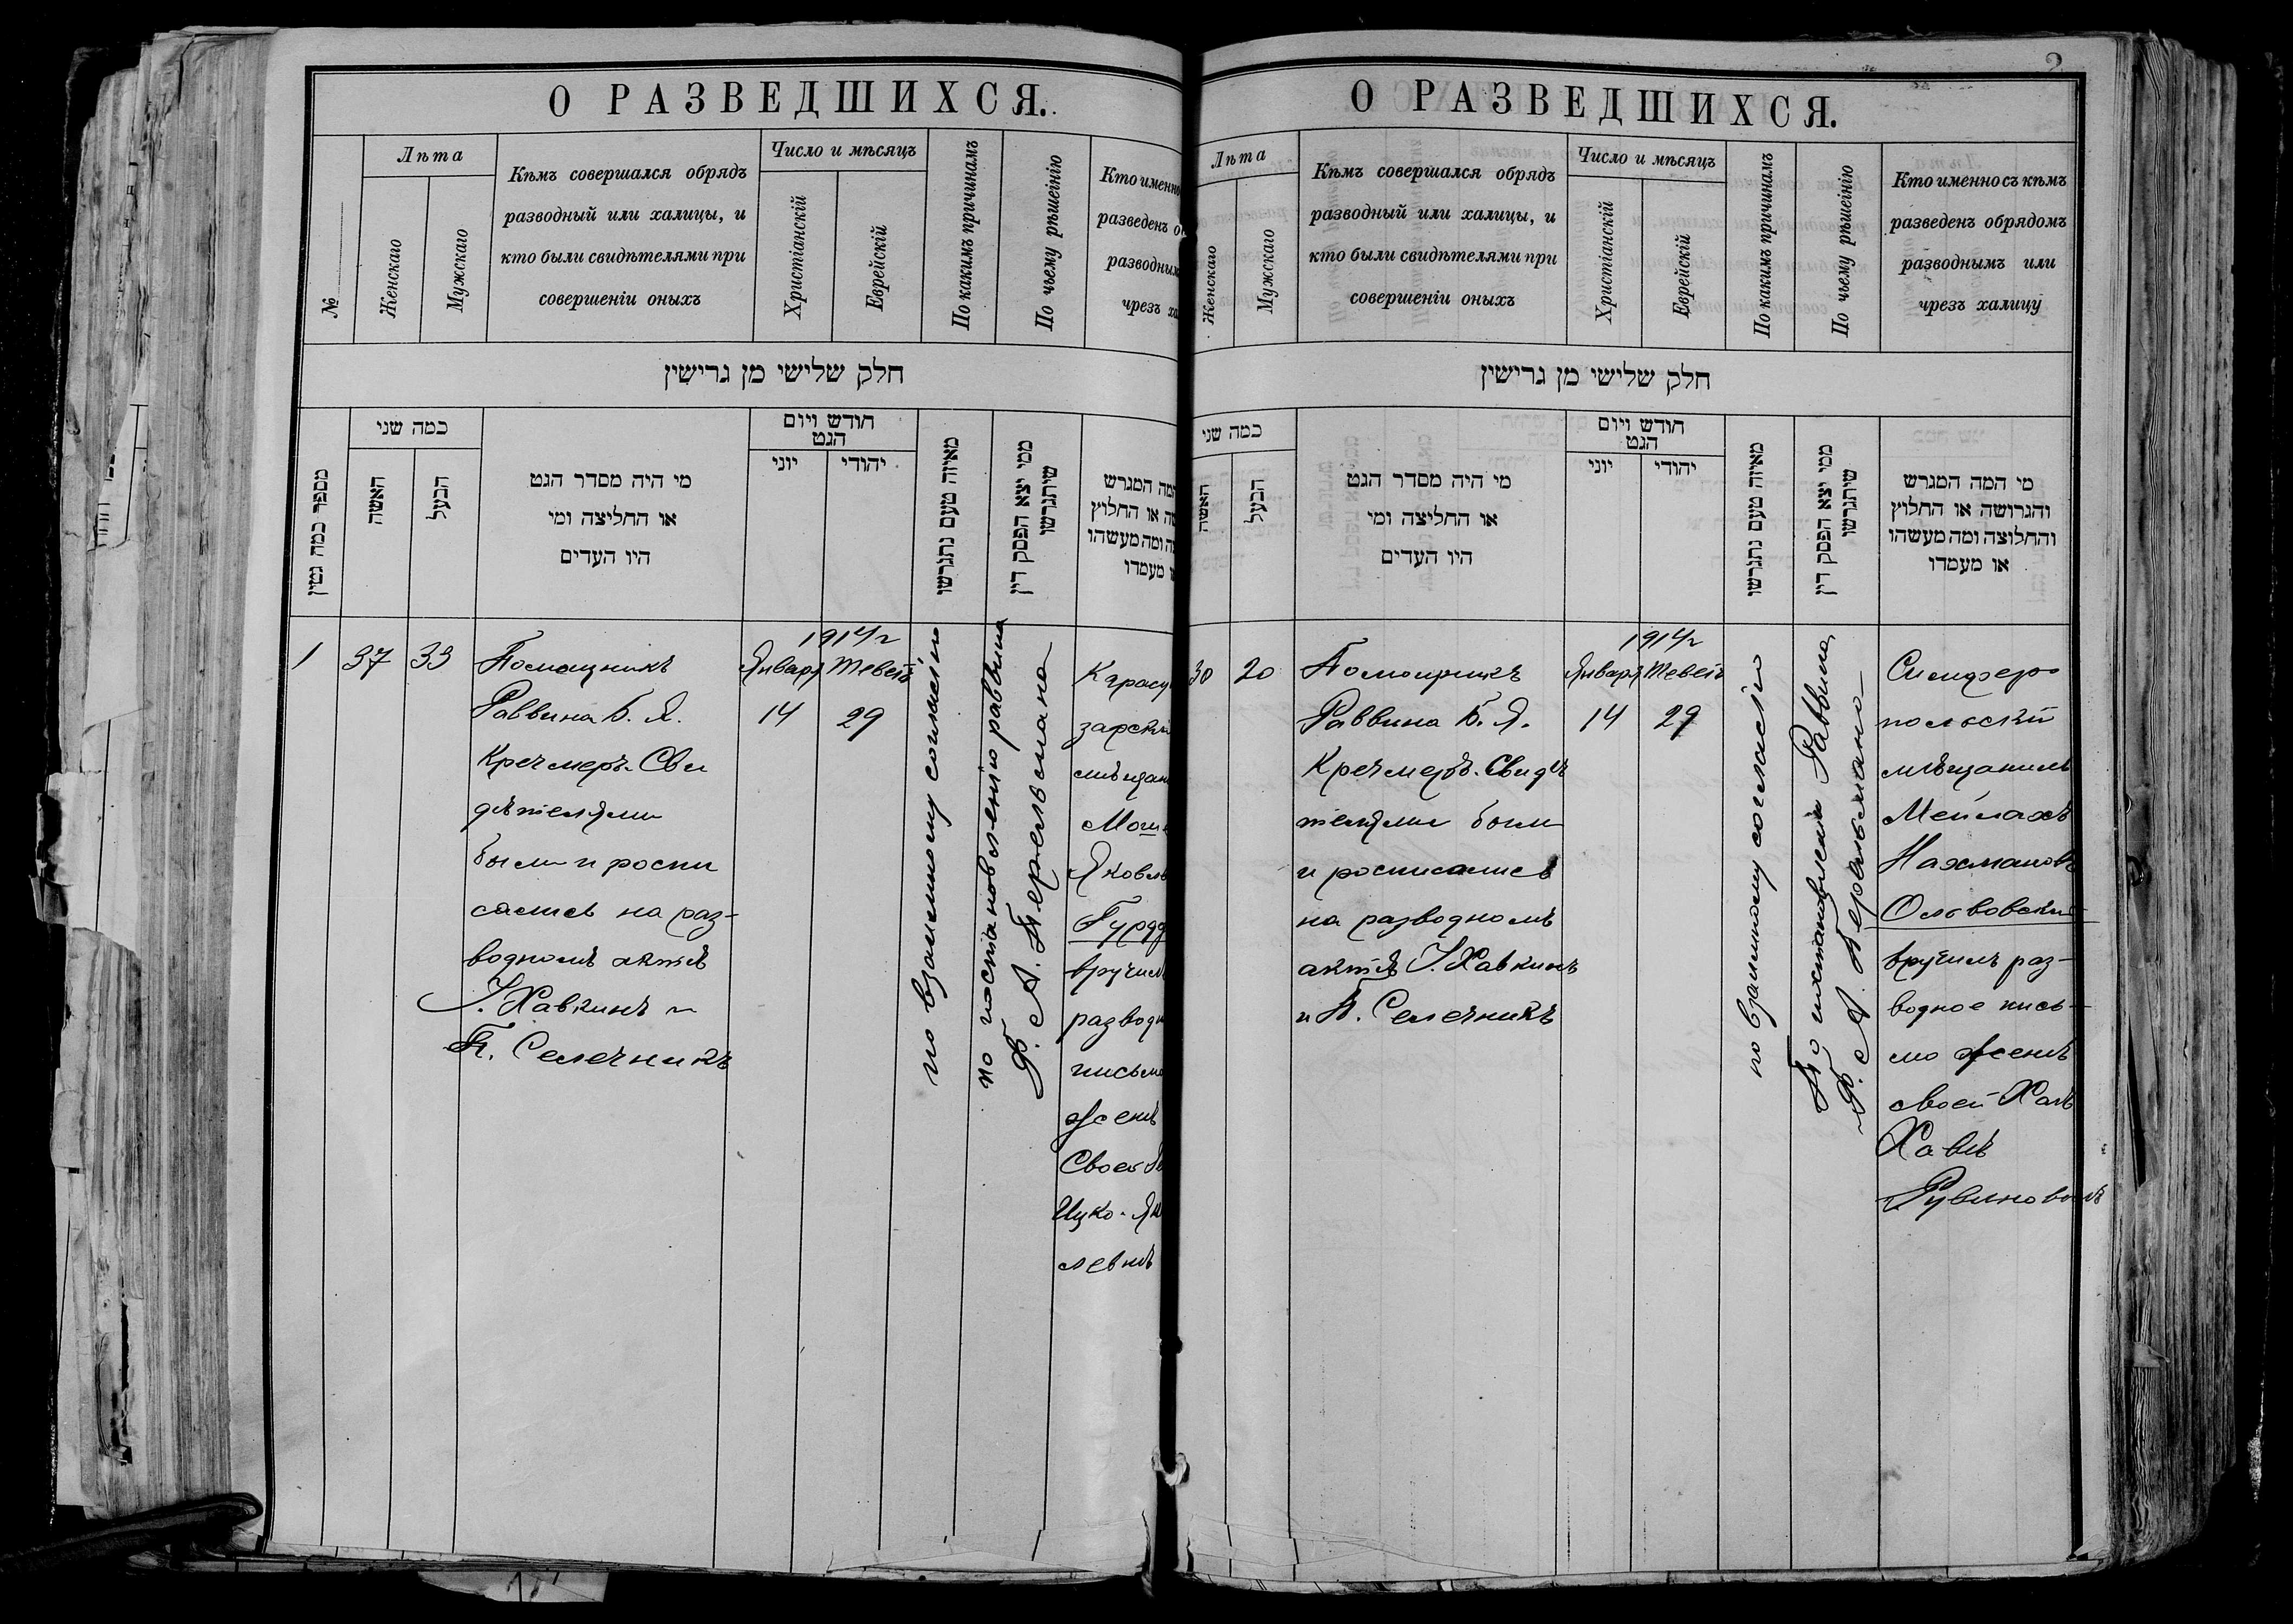 О РАЗВЕДШИХСЯ.
№
Лѣта
Женскаго
Мужскаго
Кѣмъ совершался обрядъ
разводный или халицы, и
кто были свидѣтелями при
совершеніи оныхъ
Число и мѣсяцъ
Христіанскій
Еврейскій
По какимъ причинамъ
По чьему рѣшеінію
Кто именно
разведенъ
разводны
чрезъ
חלק שלישי מן גרישין
מספר כמה גטין
כמה שני
האשה
הבעל
מי היה מסדר הגט
או החליצה ומי
היו העדים
חודש ויום
הגט
יוני
יהודי
מאיזה טעם נתגרשו
ממי יצא הפסק דין
שיתגרשו
המגרש
או החלוץ
ומה מעשהו
מעמדו
1
37
33
Помощникъ
Раввина Б. Я.
Кречмеръ. Сви
дѣтелями
были и роспи
сались на раз-
водномъ актѣ
І. Хавкинъ и
П. Селечникъ
1914 г
Января
Теветъ
14
29
по взаимному согласію
по постановленію раввина
Ф. А. Перельмана
Карасу
зарскі
мѣщан
Мош
Яковл
Гурд
вручил
развод
письмо
женѣ
Своей
Цуко-Як
левнѣ
2
О РАЗВЕДШИХСЯ.
Лѣта
Женскаго
Мужскаго
Кѣмъ совершался обрядъ
разводный или халицы, и
кто были свидѣтелями при
совершеніи оныхъ
Число и мѣсяцъ
Христіанскій
Еврейскій
По какимъ причинамъ
По чьему рѣшеінію
Кто именно съ кѣмъ
разведенъ обрядомъ
разводнымъ или
чрезъ халицу
חלק שלישי מן גרישין
כמה שני
האשה
הבעל
מי היה מסדר הגט
או החליצה ומי
היו העדים
חודש ויום
הגט
יוני
יהודי
מאיזה טעם נתגרשו
ממי יצא הפסק דין
שיתגרשו
מי המה המגרש
והגרושה או החלוץ
והחלוצה ומה מעשהו
או מעמדו
30
20
Помощникъ
Раввина Б. Я.
Кречмеръ. Свидѣ
телями были
и росписались
на разводномъ
актѣ І. Хавкинъ
и П. Селечникъ
1914 г
Января
Теветъ
14
29
по взаимному согласію
По постановленію Раввина
Ф. А. Перельмана
Симферо
польскій
мѣщанинъ
Мейлахъ
Нахмановъ
Ольвовскій
вручилъ раз-
водное пись-
мо женѣ
своей Хаѣ
Хавѣ
Рувиновой